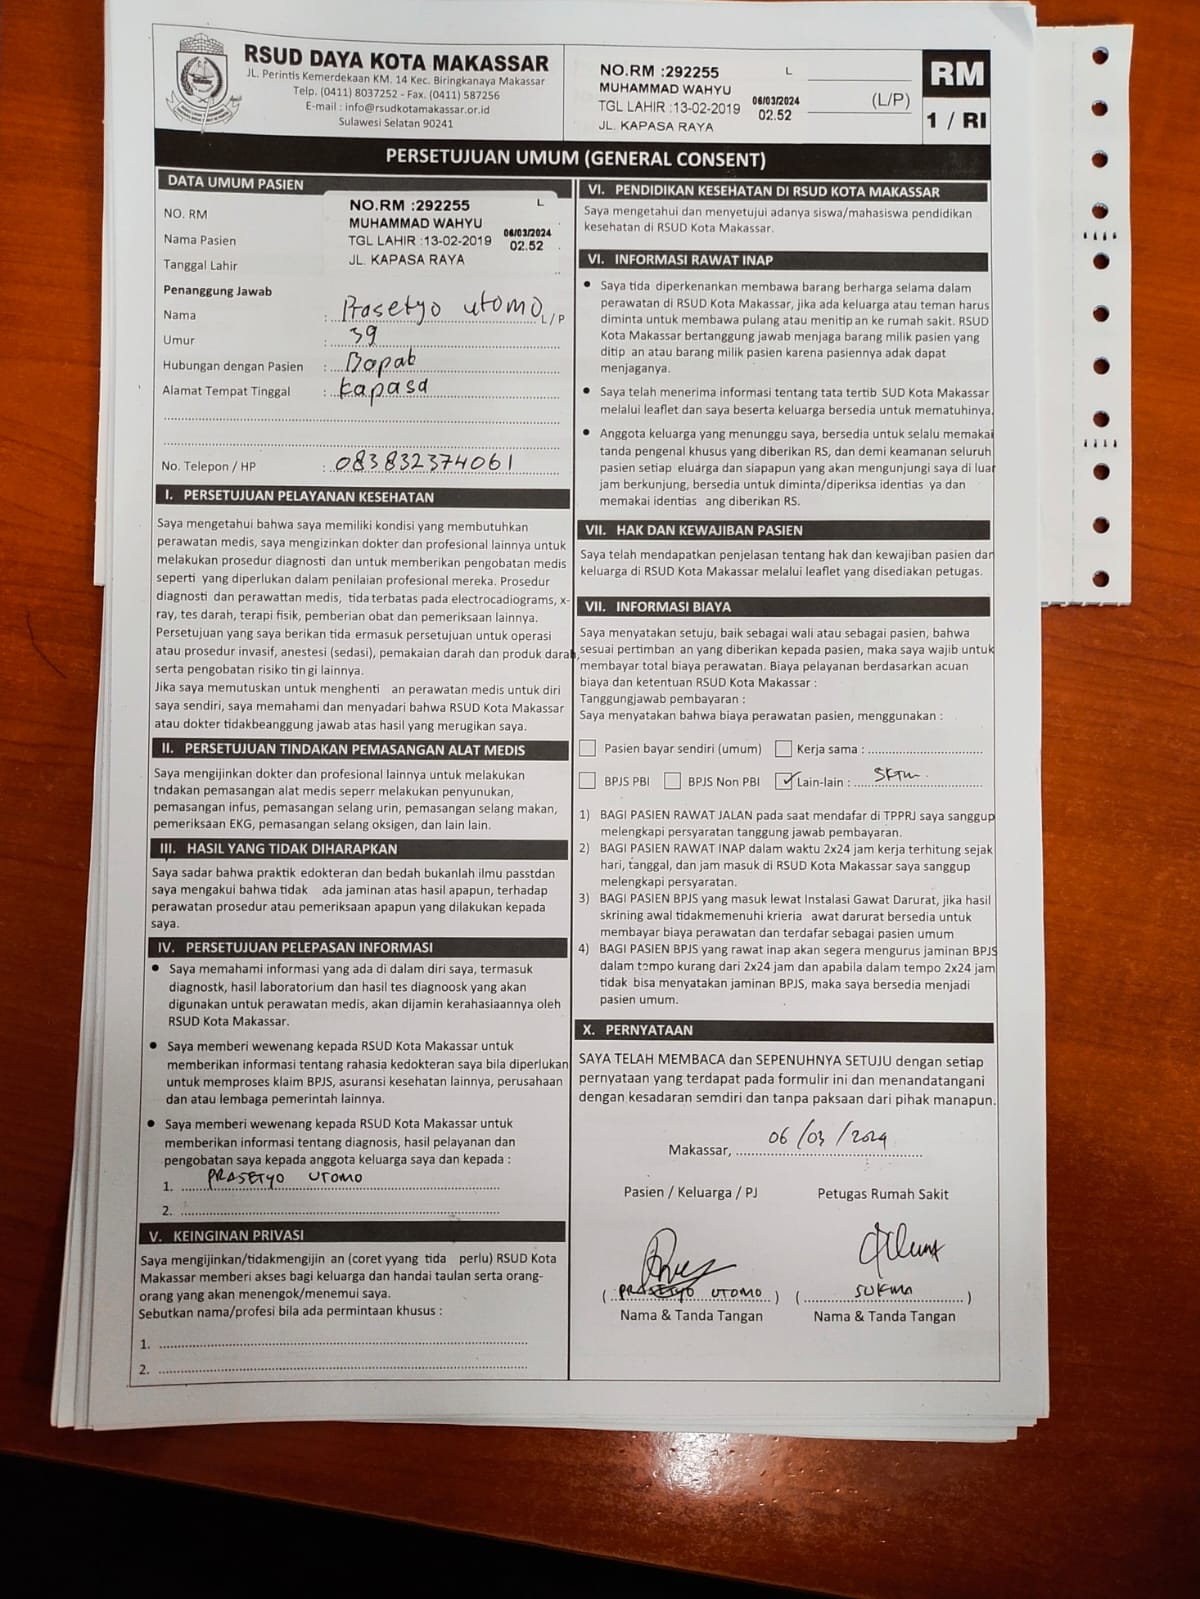 RSUD DAYA KOTA MAKASSAR
JL. Perintis Kemerdekaan KM. 14 Kec. Biringkanaya Makassar
Telp. (0411) 8037252 - Fax. (0411) 587256
E-mail : info@rsudkotamakassar.or.id
Sulawesi Selatan 90241
NO.RM :292255 L
MUHAMMAD WAHYU
TGL LAHIR :13-02-2019
JL. KAPASA RAYA
06/03/2024
02.52
(L/P)
RM
1 / RI
PERSETUJUAN UMUM (GENERAL CONSENT)
DATA UMUM PASIEN
NO. RM
Nama Pasien
Tanggal Lahir
NO.RM :292255 L
MUHAMMAD WAHYU
TGL LAHIR :13-02-2019
JL. KAPASA RAYA
06/03/2024
02.52
Penanggung Jawab
Nama : Prasetyo utomo L/P
Umur : 39
Hubungan dengan Pasien : Bapak
Alamat Tempat Tinggal : kapasa
No. Telepon / HP : 083832374061
I. PERSETUJUAN PELAYANAN KESEHATAN
Saya mengetahui bahwa saya memiliki kondisi yang membutuhkan
perawatan medis, saya mengizinkan dokter dan profesional lainnya untuk
melakukan prosedur diagnosti dan untuk memberikan pengobatan medis
seperti yang diperlukan dalam penilaian profesional mereka. Prosedur
diagnosti dan perawattan medis, tida terbatas pada electrocadiograms, x-
ray, tes darah, terapi fisik, pemberian obat dan pemeriksaan lainnya.
Persetujuan yang saya berikan tida ermasuk persetujuan untuk operasi
atau prosedur invasif, anestesi (sedasi), pemakaian darah dan produk darah,
serta pengobatan risiko tin gi lainnya.
Jika saya memutuskan untuk menghenti an perawatan medis untuk diri
saya sendiri, saya memahami dan menyadari bahwa RSUD Kota Makassar
atau dokter tidakbeanggung jawab atas hasil yang merugikan saya.
II. PERSETUJUAN TINDAKAN PEMASANGAN ALAT MEDIS
Saya mengijinkan dokter dan profesional lainnya untuk melakukan
tndakan pemasangan alat medis seperr melakukan penyunukan,
pemasangan infus, pemasangan selang urin, pemasangan selang makan,
pemeriksaan EKG, pemasangan selang oksigen, dan lain lain.
III. HASIL YANG TIDAK DIHARAPKAN
Saya sadar bahwa praktik edokteran dan bedah bukanlah ilmu passtdan
saya mengakui bahwa tidak ada jaminan atas hasil apapun, terhadap
perawatan prosedur atau pemeriksaan apapun yang dilakukan kepada
saya.
IV. PERSETUJUAN PELEPASAN INFORMASI
• Saya memahami informasi yang ada di dalam diri saya, termasuk
diagnostk, hasil laboratorium dan hasil tes diagnoosk yang akan
digunakan untuk perawatan medis, akan dijamin kerahasiaannya oleh
RSUD Kota Makassar.
• Saya memberi wewenang kepada RSUD Kota Makassar untuk
memberikan informasi tentang rahasia kedokteran saya bila diperlukan
untuk memproses klaim BPJS, asuransi kesehatan lainnya, perusahaan
dan atau lembaga pemerintah lainnya.
• Saya memberi wewenang kepada RSUD Kota Makassar untuk
memberikan informasi tentang diagnosis, hasil pelayanan dan
pengobatan saya kepada anggota keluarga saya dan kepada :
1. PRASETYO UTOMO
2.
V. KEINGINAN PRIVASI
Saya mengijinkan/tidakmengijin an (coret yyang tida perlu) RSUD Kota
Makassar memberi akses bagi keluarga dan handai taulan serta orang-
orang yang akan menengok/menemui saya.
Sebutkan nama/profesi bila ada permintaan khusus :
1.
2.
VI. PENDIDIKAN KESEHATAN DI RSUD KOTA MAKASSAR
Saya mengetahui dan menyetujui adanya siswa/mahasiswa pendidikan
kesehatan di RSUD Kota Makassar.
VI. INFORMASI RAWAT INAP
• Saya tida diperkenankan membawa barang berharga selama dalam
perawatan di RSUD Kota Makassar, jika ada keluarga atau teman harus
diminta untuk membawa pulang atau menitip an ke rumah sakit. RSUD
Kota Makassar bertanggung jawab menjaga barang milik pasien yang
ditip an atau barang milik pasien karena pasiennya adak dapat
menjaganya.
• Saya telah menerima informasi tentang tata tertib SUD Kota Makassar
melalui leaflet dan saya beserta keluarga bersedia untuk mematuhinya.
• Anggota keluarga yang menunggu saya, bersedia untuk selalu memakai
tanda pengenal khusus yang diberikan RS, dan demi keamanan seluruh
pasien setiap eluarga dan siapapun yang akan mengunjungi saya di luar
jam berkunjung, bersedia untuk diminta/diperiksa identias ya dan
memakai identias ang diberikan RS.
VII. HAK DAN KEWAJIBAN PASIEN
Saya telah mendapatkan penjelasan tentang hak dan kewajiban pasien dan
keluarga di RSUD Kota Makassar melalui leaflet yang disediakan petugas.
VII. INFORMASI BIAYA
Saya menyatakan setuju, baik sebagai wali atau sebagai pasien, bahwa
sesuai pertimban an yang diberikan kepada pasien, maka saya wajib untuk
membayar total biaya perawatan. Biaya pelayanan berdasarkan acuan
biaya dan ketentuan RSUD Kota Makassar :
Tanggungjawab pembayaran :
Saya menyatakan bahwa biaya perawatan pasien, menggunakan :
Pasien bayar sendiri (umum) Kerja sama :
BPJS PBI BPJS Non PBI ✓ Lain-lain : SKTM
1) BAGI PASIEN RAWAT JALAN pada saat mendafar di TPPRJ saya sanggup
melengkapi persyaratan tanggung jawab pembayaran.
2) BAGI PASIEN RAWAT INAP dalam waktu 2x24 jam kerja terhitung sejak
hari, tanggal, dan jam masuk di RSUD Kota Makassar saya sanggup
melengkapi persyaratan.
3) BAGI PASIEN BPJS yang masuk lewat Instalasi Gawat Darurat, jika hasil
skrining awal tidakmemenuhi krieria awat darurat bersedia untuk
membayar biaya perawatan dan terdafar sebagai pasien umum
4) BAGI PASIEN BPJS yang rawat inap akan segera mengurus jaminan BPJS
dalam tempo kurang dari 2x24 jam dan apabila dalam tempo 2x24 jam
tidak bisa menyatakan jaminan BPJS, maka saya bersedia menjadi
pasien umum.
X. PERNYATAAN
SAYA TELAH MEMBACA dan SEPENUHNYA SETUJU dengan setiap
pernyataan yang terdapat pada formulir ini dan menandatangani
dengan kesadaran semdiri dan tanpa paksaan dari pihak manapun.
Makassar, 06/03/2024
Pasien / Keluarga / PJ Petugas Rumah Sakit
( PRASETYO UTOMO ) ( SUKMA )
Nama & Tanda Tangan Nama & Tanda Tangan